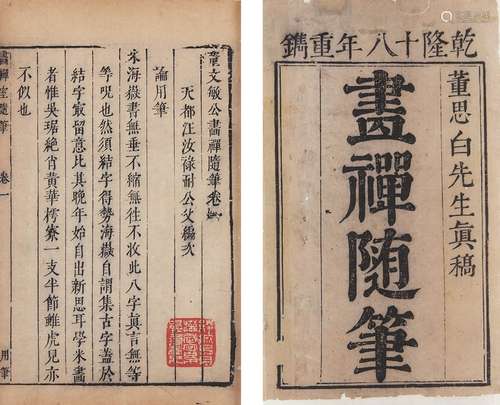 乾隆十八年重鐫
董思白先生眞稿
畫禪随筆
董文敏公畫禪隨筆卷
天都汪汝祿耐公父編次
論用筆
米海嶽書無垂不縮無往不收此八字眞言無等
等咒也然須結字得勢海嶽自謂集古字蓋於
結字最留意比其晚年始自出新思耳學米畫
者惟吳琚絶肖黃華樗寮一支半節雖虎兒亦
不似也
畫禪室隨筆 卷一
用筆